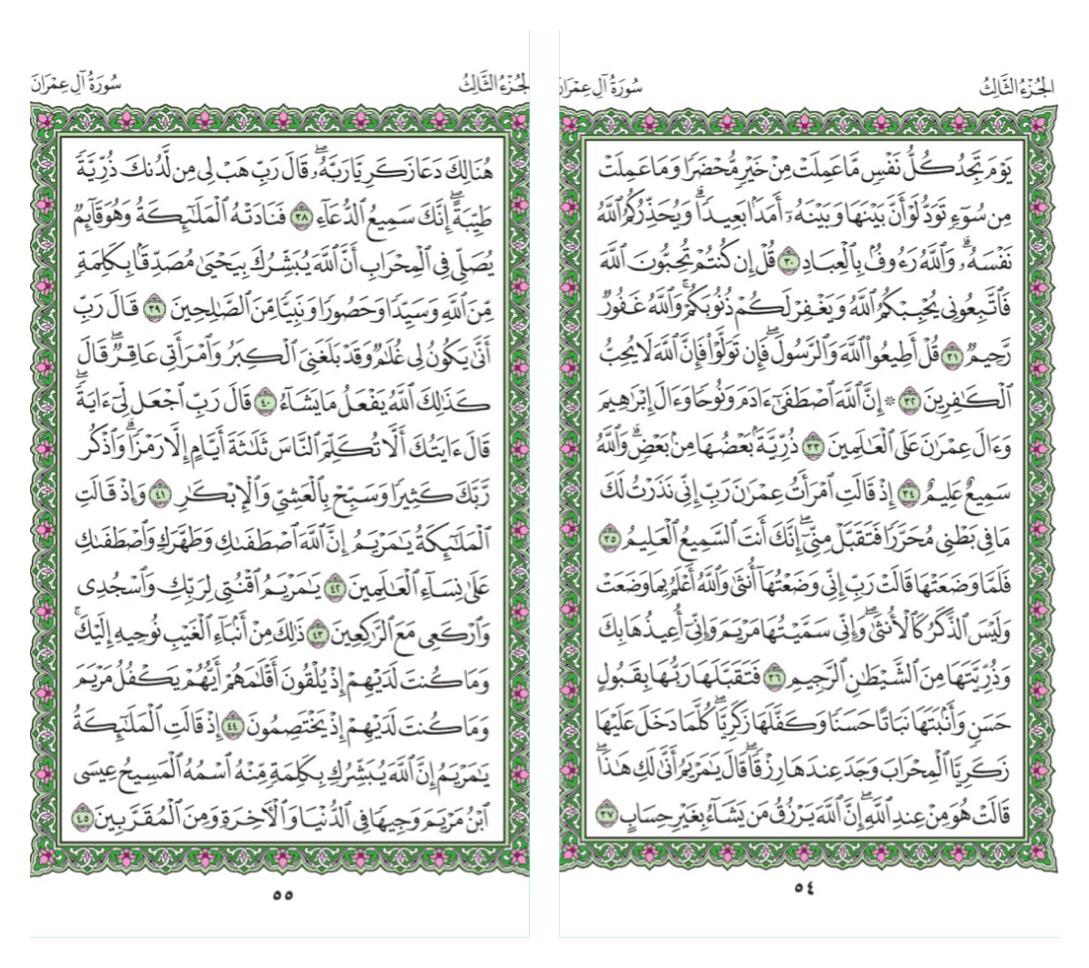 الجُزْءُ الثَّالِثُ
سُورَةُ آلِ عِمْرَان
يَوْمَ تَجِدُ كُلُّ نَفْسٍ مَّا عَمِلَتْ مِنْ خَيْرٍ مُّحْضَرًا وَمَا عَمِلَتْ
مِن سُوٓءٍ تَوَدُّ لَوْ أَنَّ بَيْنَهَا وَبَيْنَهُۥٓ أَمَدًۢا بَعِيدًاۗ وَيُحَذِّرُكُمُ ٱللَّهُ
نَفْسَهُۥۗ وَٱللَّهُ رَءُوفُۢ بِٱلْعِبَادِ ٣٠ قُلْ إِن كُنتُمْ تُحِبُّونَ ٱللَّهَ
فَٱتَّبِعُونِي يُحْبِبْكُمُ ٱللَّهُ وَيَغْفِرْ لَكُمْ ذُنُوبَكُمْۚ وَٱللَّهُ غَفُورٌ
رَّحِيمٌ ٣١ قُلْ أَطِيعُوا۟ ٱللَّهَ وَٱلرَّسُولَۖ فَإِن تَوَلَّوْا۟ فَإِنَّ ٱللَّهَ لَا يُحِبُّ
ٱلْكَٰفِرِينَ ٣٢ ۞ إِنَّ ٱللَّهَ ٱصْطَفَىٰٓ ءَادَمَ وَنُوحًا وَءَالَ إِبْرَٰهِيمَ
وَءَالَ عِمْرَٰنَ عَلَى ٱلْعَٰلَمِينَ ٣٣ ذُرِّيَّةَۢ بَعْضُهَا مِنۢ بَعْضٍۗ وَٱللَّهُ
سَمِيعٌ عَلِيمٌ ٣٤ إِذْ قَالَتِ ٱمْرَأَتُ عِمْرَٰنَ رَبِّ إِنِّي نَذَرْتُ لَكَ
مَا فِي بَطْنِي مُحَرَّرًا فَتَقَبَّلْ مِنِّيٓۖ إِنَّكَ أَنتَ ٱلسَّمِيعُ ٱلْعَلِيمُ ٣٥
فَلَمَّا وَضَعَتْهَا قَالَتْ رَبِّ إِنِّي وَضَعْتُهَآ أُنثَىٰ وَٱللَّهُ أَعْلَمُ بِمَا وَضَعَتْ
وَلَيْسَ ٱلذَّكَرُ كَٱلْأُنثَىٰۖ وَإِنِّي سَمَّيْتُهَا مَرْيَمَ وَإِنِّيٓ أُعِيذُهَا بِكَ
وَذُرِّيَّتَهَا مِنَ ٱلشَّيْطَٰنِ ٱلرَّجِيمِ ٣٦ فَتَقَبَّلَهَا رَبُّهَا بِقَبُولٍ
حَسَنٍ وَأَنۢبَتَهَا نَبَاتًا حَسَنًا وَكَفَّلَهَا زَكَرِيَّاۖ كُلَّمَا دَخَلَ عَلَيْهَا
زَكَرِيَّا ٱلْمِحْرَابَ وَجَدَ عِندَهَا رِزْقًاۖ قَالَ يَٰمَرْيَمُ أَنَّىٰ لَكِ هَٰذَاۖ
قَالَتْ هُوَ مِنْ عِندِ ٱللَّهِۖ إِنَّ ٱللَّهَ يَرْزُقُ مَن يَشَآءُ بِغَيْرِ حِسَابٍ ٣٧
٥٤
الجُزْءُ الثَّالِثُ
سُورَةُ آلِ عِمْرَان
هُنَالِكَ دَعَا زَكَرِيَّا رَبَّهُۥۖ قَالَ رَبِّ هَبْ لِي مِن لَّدُنكَ ذُرِّيَّةً
طَيِّبَةًۖ إِنَّكَ سَمِيعُ ٱلدُّعَآءِ ٣٨ فَنَادَتْهُ ٱلْمَلَٰٓئِكَةُ وَهُوَ قَآئِمٌ
يُصَلِّي فِي ٱلْمِحْرَابِ أَنَّ ٱللَّهَ يُبَشِّرُكَ بِيَحْيَىٰ مُصَدِّقَۢا بِكَلِمَةٍ
مِّنَ ٱللَّهِ وَسَيِّدًا وَحَصُورًا وَنَبِيًّا مِّنَ ٱلصَّٰلِحِينَ ٣٩ قَالَ رَبِّ
أَنَّىٰ يَكُونُ لِي غُلَٰمٌ وَقَدْ بَلَغَنِيَ ٱلْكِبَرُ وَٱمْرَأَتِي عَاقِرٌۖ قَالَ
كَذَٰلِكَ ٱللَّهُ يَفْعَلُ مَا يَشَآءُ ٤٠ قَالَ رَبِّ ٱجْعَل لِّيٓ ءَايَةًۖ
قَالَ ءَايَتُكَ أَلَّا تُكَلِّمَ ٱلنَّاسَ ثَلَٰثَةَ أَيَّامٍ إِلَّا رَمْزًاۗ وَٱذْكُر
رَّبَّكَ كَثِيرًا وَسَبِّحْ بِٱلْعَشِيِّ وَٱلْإِبْكَٰرِ ٤١ وَإِذْ قَالَتِ
ٱلْمَلَٰٓئِكَةُ يَٰمَرْيَمُ إِنَّ ٱللَّهَ ٱصْطَفَىٰكِ وَطَهَّرَكِ وَٱصْطَفَىٰكِ
عَلَىٰ نِسَآءِ ٱلْعَٰلَمِينَ ٤٢ يَٰمَرْيَمُ ٱقْنُتِي لِرَبِّكِ وَٱسْجُدِي
وَٱرْكَعِي مَعَ ٱلرَّٰكِعِينَ ٤٣ ذَٰلِكَ مِنْ أَنۢبَآءِ ٱلْغَيْبِ نُوحِيهِ إِلَيْكَۚ
وَمَا كُنتَ لَدَيْهِمْ إِذْ يُلْقُونَ أَقْلَٰمَهُمْ أَيُّهُمْ يَكْفُلُ مَرْيَمَ
وَمَا كُنتَ لَدَيْهِمْ إِذْ يَخْتَصِمُونَ ٤٤ إِذْ قَالَتِ ٱلْمَلَٰٓئِكَةُ
يَٰمَرْيَمُ إِنَّ ٱللَّهَ يُبَشِّرُكِ بِكَلِمَةٍ مِّنْهُ ٱسْمُهُ ٱلْمَسِيحُ عِيسَى
ٱبْنُ مَرْيَمَ وَجِيهًا فِي ٱلدُّنْيَا وَٱلْءَاخِرَةِ وَمِنَ ٱلْمُقَرَّبِينَ ٤٥
٥٥